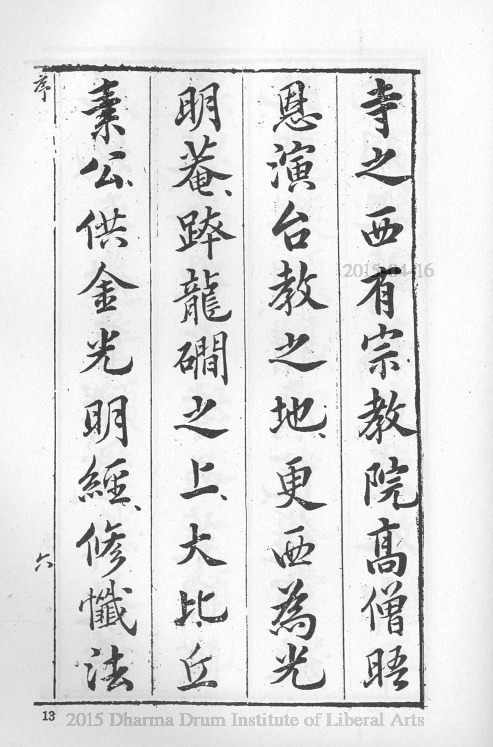 寺之西有宗教院高僧晤
恩演台教之地、更西為光
明菴、踤龍磵之上、大比丘
素公、供金光明經、修懺法
序
六
13
2015 Dharma Drum Institute of Liberal Arts
2015-04-16